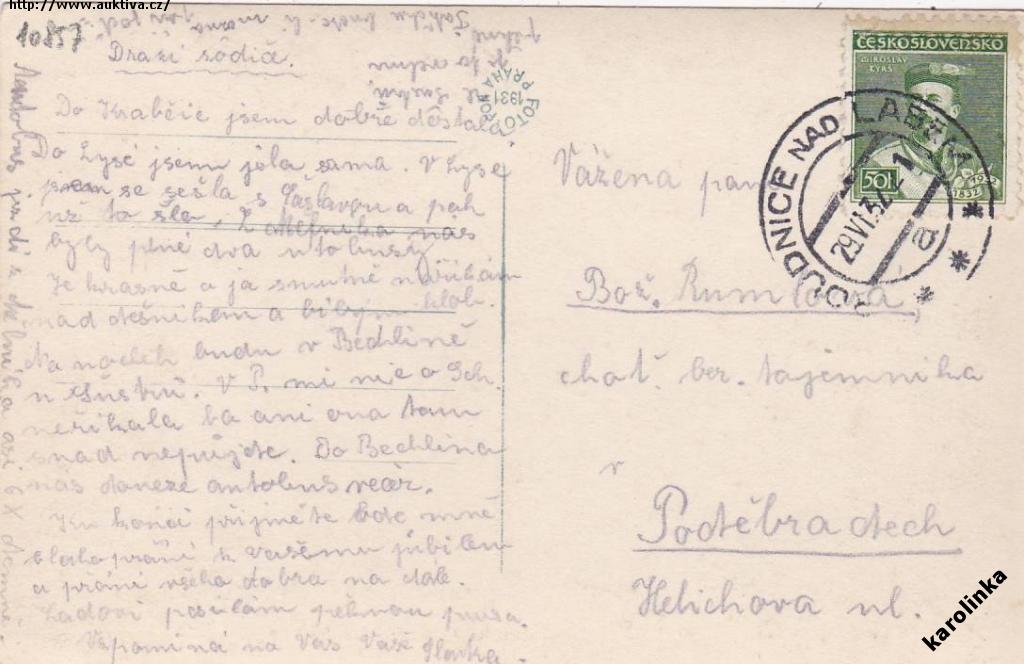 http://www.auktiva.cz/
10857
Drazí rodiče.
Do Krabčic jsem dobře dostala
Do Lysé jsem jela sama. V Lyse
jsem se sešla s a pak
už to šlo, z Mělníka nás
byly plné dva utobusy
Je krásně a já smutně naříkám
nad deštníkem a bílým klob.
Na nocleh budu v Bechlíně
u Šustrů. V P. mi nic o Sch.
neříkala ba ani ona tam
snad nepůjde. Do Bechlína
nás doveze autobus večr.
Ku konci přijměte ode mně
blahopřání k vašemu jubileu
a přání všeho dobra na dále.
Laďovi posílám pěknou pusu.
Vzpomíná na Vás Vaše Slávka.
Autobus jezdí z Mělníka asi x denně.
FOTO FON
1931
PRAHA
ČESKOSLOVENSKO
MIROSLAV
TYRŠ
50h
1832 1932
ROUDNICE NAD LABEM
29.VI.32
a
Vážená paní
Bož. Rumlová
choť. ber. tajemníka
v
Poděbradech
Helichova ul.
karolinka